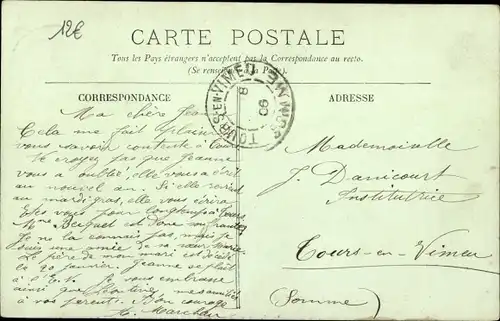 12€
CARTE POSTALE
Tous les Pays étrangers n'acceptent pas la Correspondance au recto.
(Se renseigner à la Poste).
CORRESPONDANCE
ADRESSE
TOURS-EN-VIMEU
SOMME
8
06
Ma chère Jeanne
Cela me fait plaisir
vous savoir contente à
croyez pas que Jeanne
vous a oublié, elle vous a écrit
au nouvel an. Si elle
au mardi gras, elle vous écrira
pour longtemps
Mme est
Je ne la connais pas, mais je
suis une amie de sa sœur Marie
Le père de mon mari est décédé
le 20 janvier. Jeanne se plaît
à l'E. Je vous embrasse
ainsi que
vos parents. Bon courage
Mademoiselle
J. Danicourt
Institutrice
Tours-en-Vimeu
(Somme)